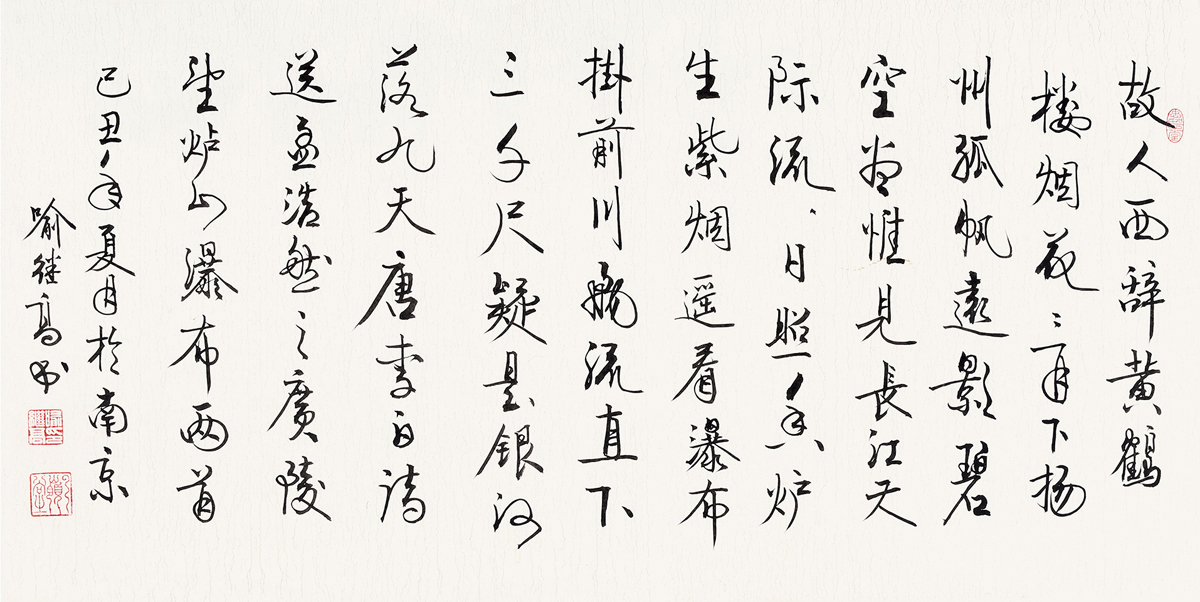 故人西辞黄鶴
楼烟花三月下扬
州孤帆遠影碧
空尽惟見長江天
际流、日照香炉
生紫烟遥看瀑布
掛前川飛流直下
三千尺疑是銀河
落九天唐李白诗
送孟浩然之廣陵
望炉山瀑布两首
己丑年夏月於南京
喻继高书